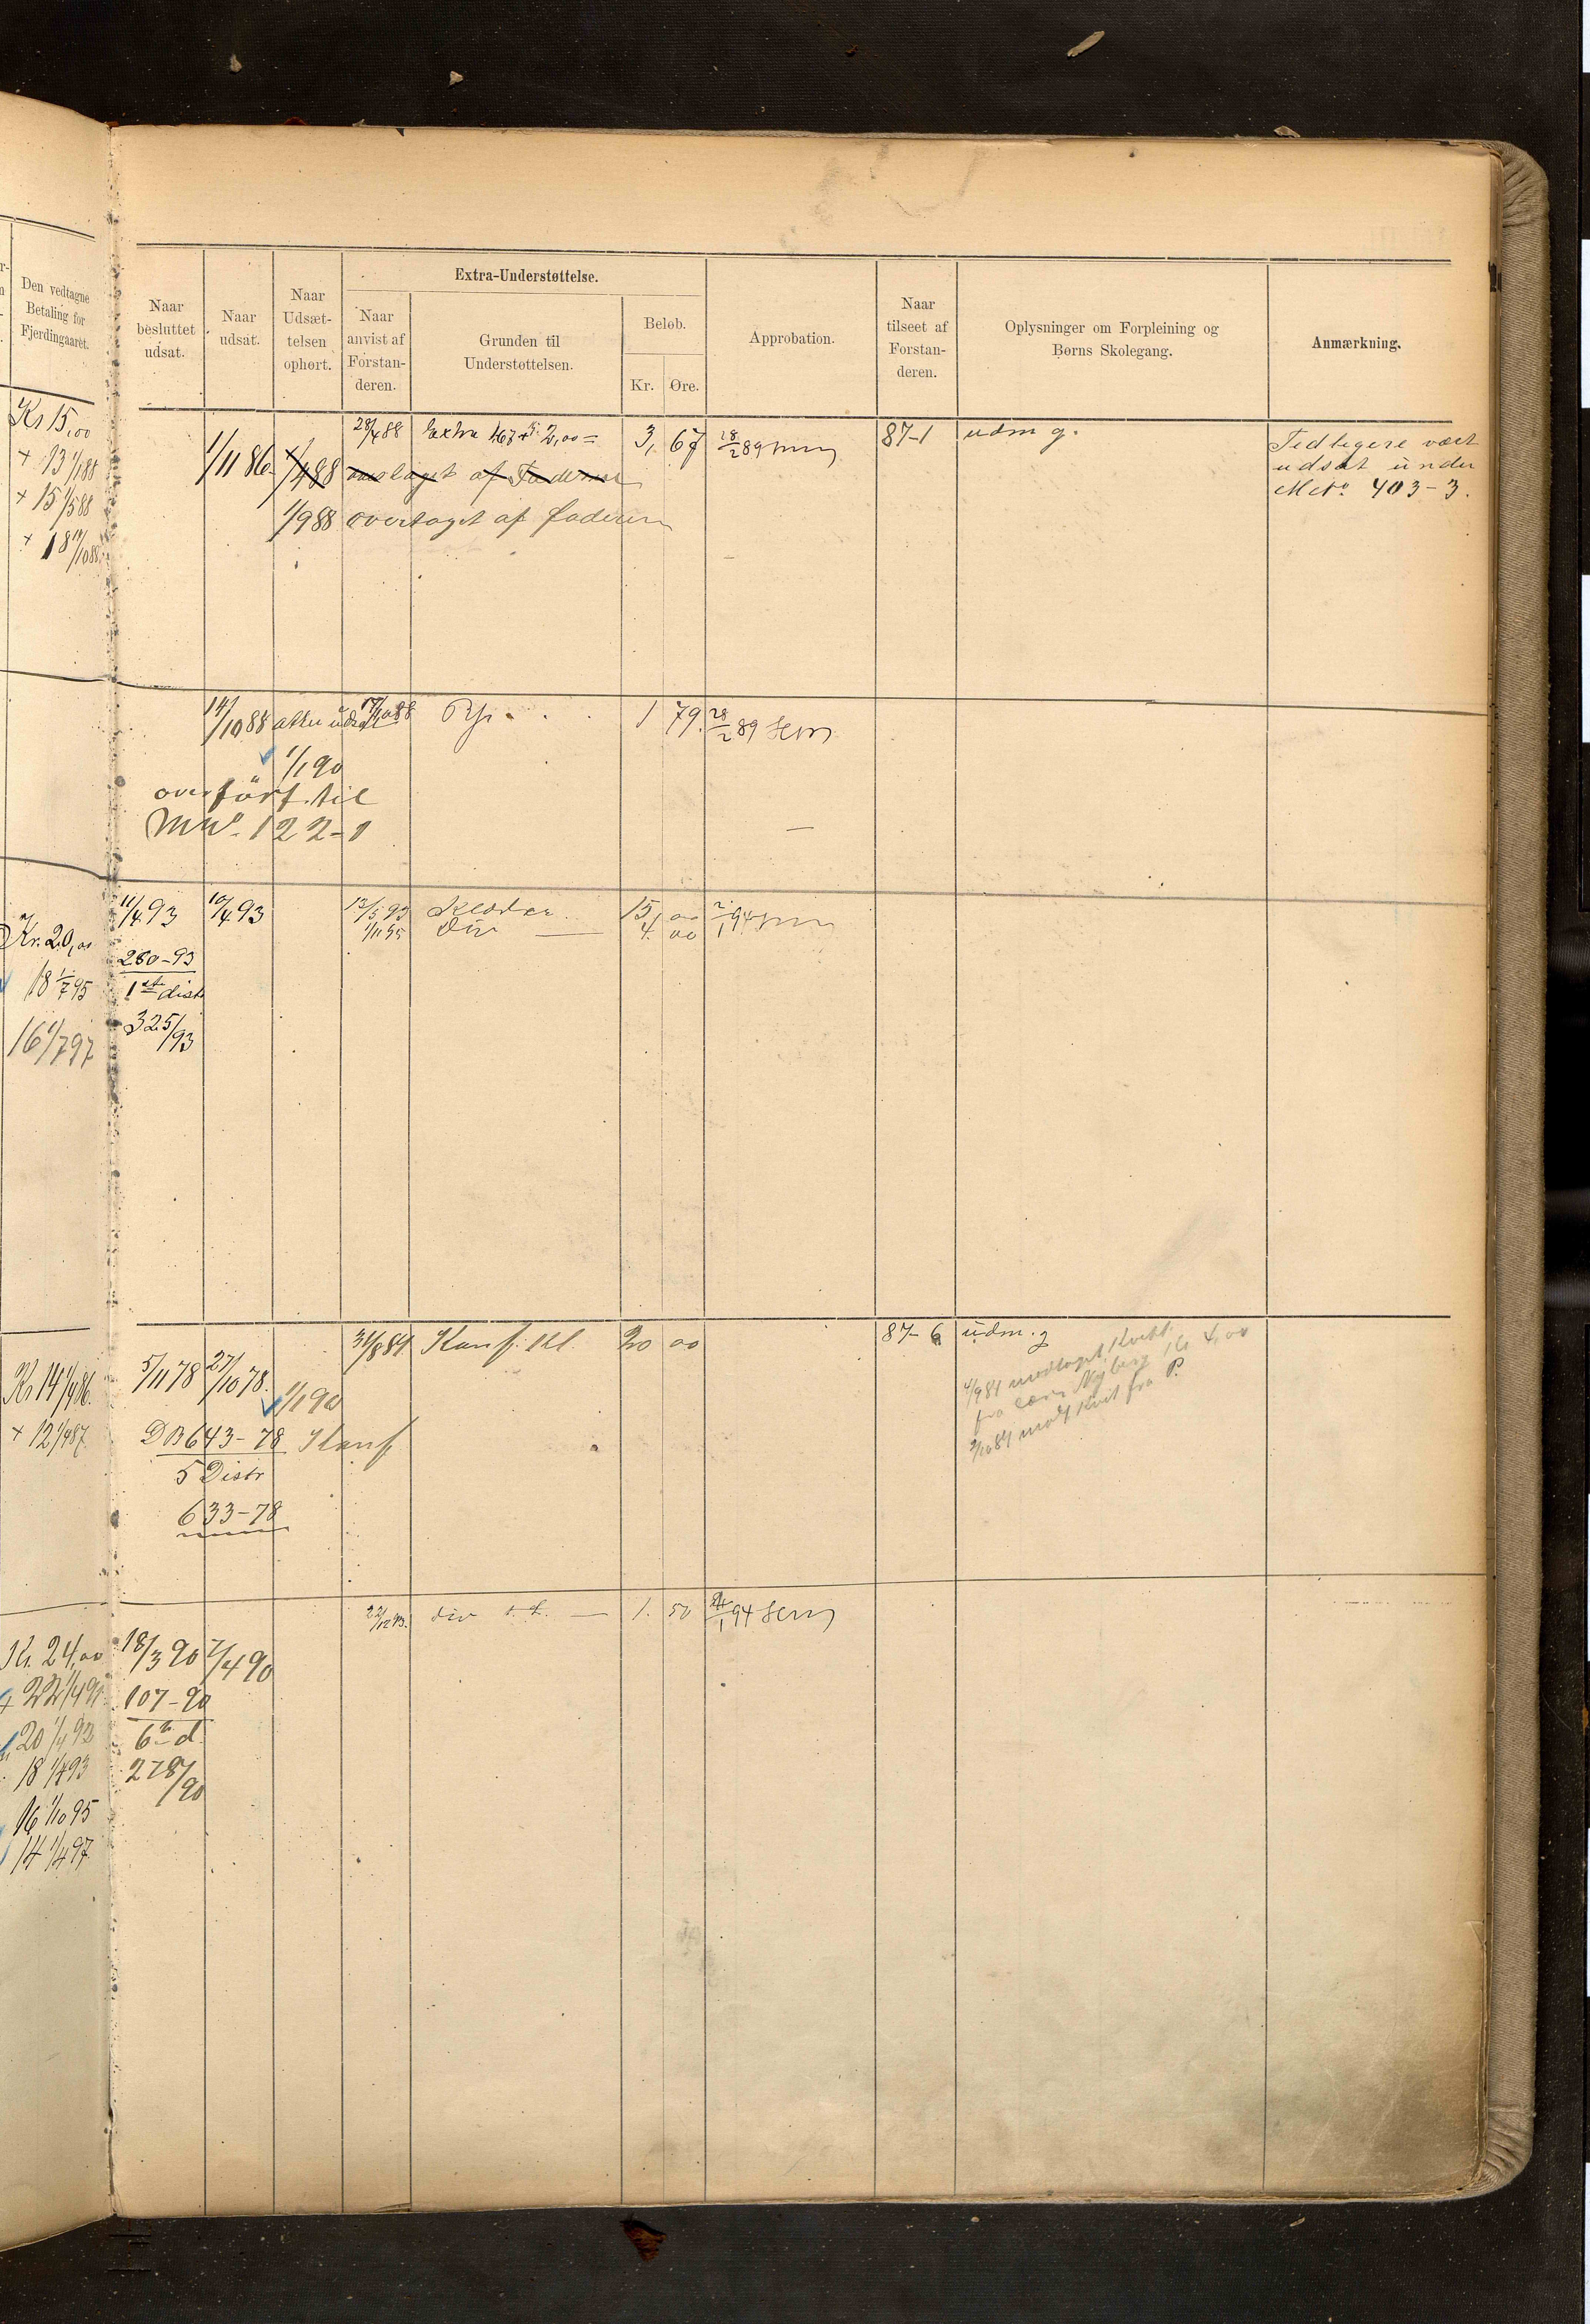 Den vedtagne
Betaling for
Fjerdingaaret.
Naar
besluttet
udsat.
Naar
udsat.
Naar
Udsæt-
telsen
ophørt.
Extra-Understøttelse.
Naar
anvist af
Forstan-
deren.
Grunden til
Understøttelsen.
Beløb.
Kr.
Øre.
Approbation.
Naar
tilseet af
Forstan-
deren.
Oplysninger om Forpleining og
Børns Skolegang.
Anmærkning.
Kr 15,00
+ 13 1/1 88
+ 15 1/5 88
+ 18 /10 88
1/11 86
1/4 88
28/4 88 Extra 1.67 + 2,00 = 3, 67
28/2 89
af Faderen
1/9 88 overtaget af faderen
87-1 udm g.
Tidligere vært
udsat under
Mtr. 403-3.
14/10 88 atter udsat 17/10 88
1 79. 28/2 89
1/1 90
overført til
122-1
Kr. 20,00
18 1/7 95
16 1/7 97
11/4 93 10/4 93
280-93
1st distr
325/93
13/5 93 Klæder 15, 00
1/11 95 Div 4. 00
2/1 94
Kr 14 1/4 86.
+ 12 1/4 87
5/11 78 27/10 78.
1/1 90
DB 643-78 Konf
5 Distr
633-78
31/8 84 Konf. Kl. 20 00
87-6 udm. g
4/9 84 modtaget Kvitt.
fra Nyberg Kr 4,00
2/10 84 modt Kvit fra P.
Kr. 24,00
+ 22 1/4 91
20 1/4 92
18 1/4 93
16 1/10 95
14 1/4 97
18/3 90 7/4 90
107-90
6te d.
278/90
22/12 93. div 1. 50
/1 94